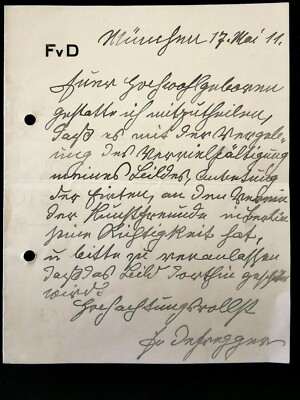 FvD
München 17. Mai 11.
Euer Hochwohlgeboren
gestatte ich mitzutheilen,
daß es mit der Vergeb-
ung des Vervielfältigung
meines Bildes, Anbetung
der Hirten, an den Verein
der Kunstfreunde in Berlin
seine Richtigkeit hat,
u bitte zu veranlassen
daß das Bild dorthin geschickt
wird.
Hochachtungsvollst
Fv Defregger